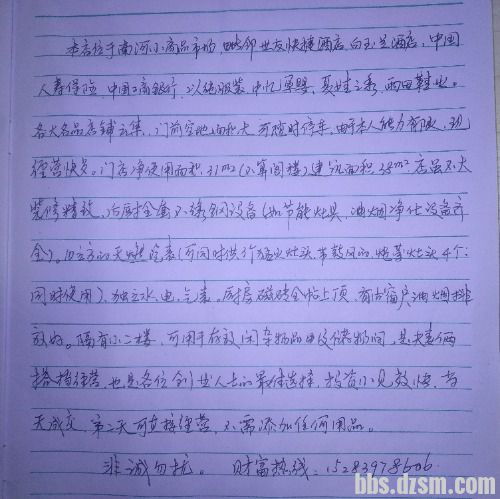 本店位于南河小商品市场，毗邻世友快捷酒店，白玉兰酒店，中国
人寿保险，中国工商银行，以纯服装 中忆孕婴，夏娃之秀，西田鞋业。
各大名品店铺云集，门前空地面积大 可临时停车，由于本人能力有限，现
经营快点。门店净使用面积31m²（不算阁楼）建筑面积38m²店虽不大
装修精致，后厨全套不锈钢设备（如节能灶具，油烟净化设备齐
全）。10立方的天燃气表（可同时供行猛火灶头 带鼓风的，炖菜灶头4个
同时使用），独立水，电，气表。厨房磁砖全贴上顶，有大窗户油烟排
放好。隔有小二楼，可用于存放闲杂物品以及储物间，是夫妻俩
搭档经营，也是各位创业人士的最佳选择，投资小见效快，当
天成交，第二天可直接经营，不需添加任何用品。
非诚勿扰。 财富热线：15283978606
bbs.dzsm.com